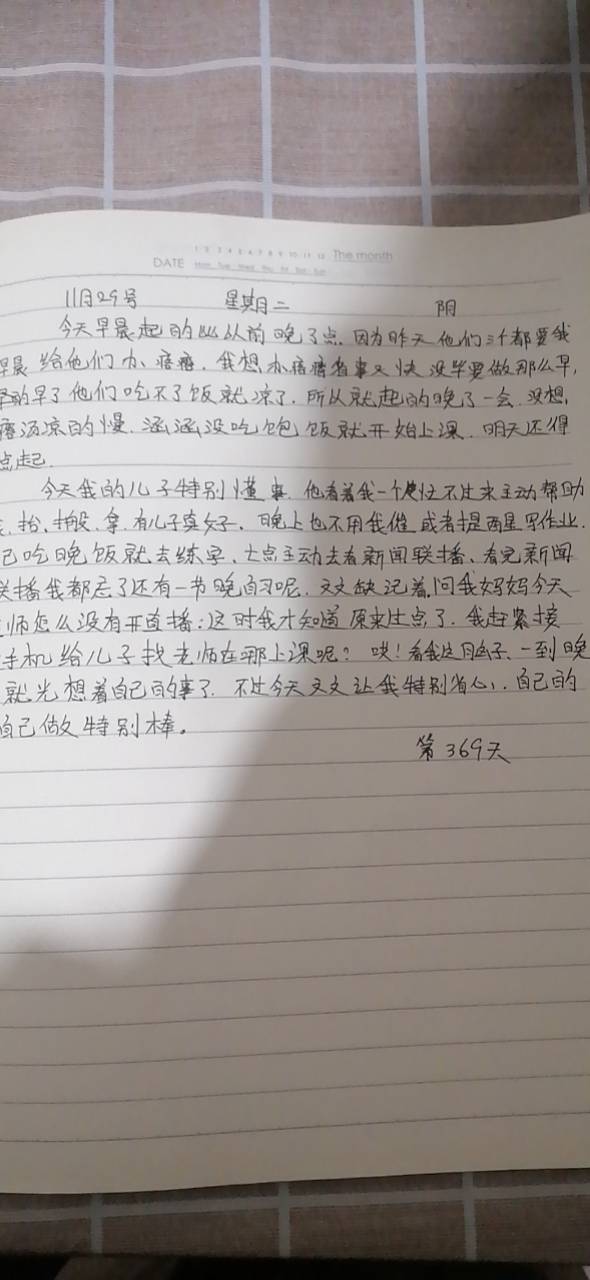 1 2 3 4 5 6 7 8 9 10 11 12 The month
DATE Mon Tue Wed Thu Fri Sat Sun
11月29号 星期二 阴
今天早晨起的比以前晚了点.因为昨天他们三个都要我
早晨给他们办疙瘩.我想办疙瘩省事又快没毕要做那么早,
早了他们吃不了饭就凉了.所以就起的晚了一会.没想,
汤凉的慢.涵涵没吃饱饭就开始上课.明天还得
点起.
今天我的儿子特别懂事.他看着我一个人忙不过来主动帮助
抬、搬、拿.有儿子真好.晚上也不用我催或者提而星写作业.
己吃晚饭就去练字.七点主动去看新闻联播、看完新闻
联播我都忘了还有一节晚自习呢.文文缺记着.问我妈妈今天
师怎么没有开直播:这时我才知道原来七点了.我赶紧接
手机给儿子找老师在那上课呢?哎!看我这脑子、一到晚
就光想着自己的事了.不过今天文文让我特别省心、自己的
自己做特别棒。
第369天